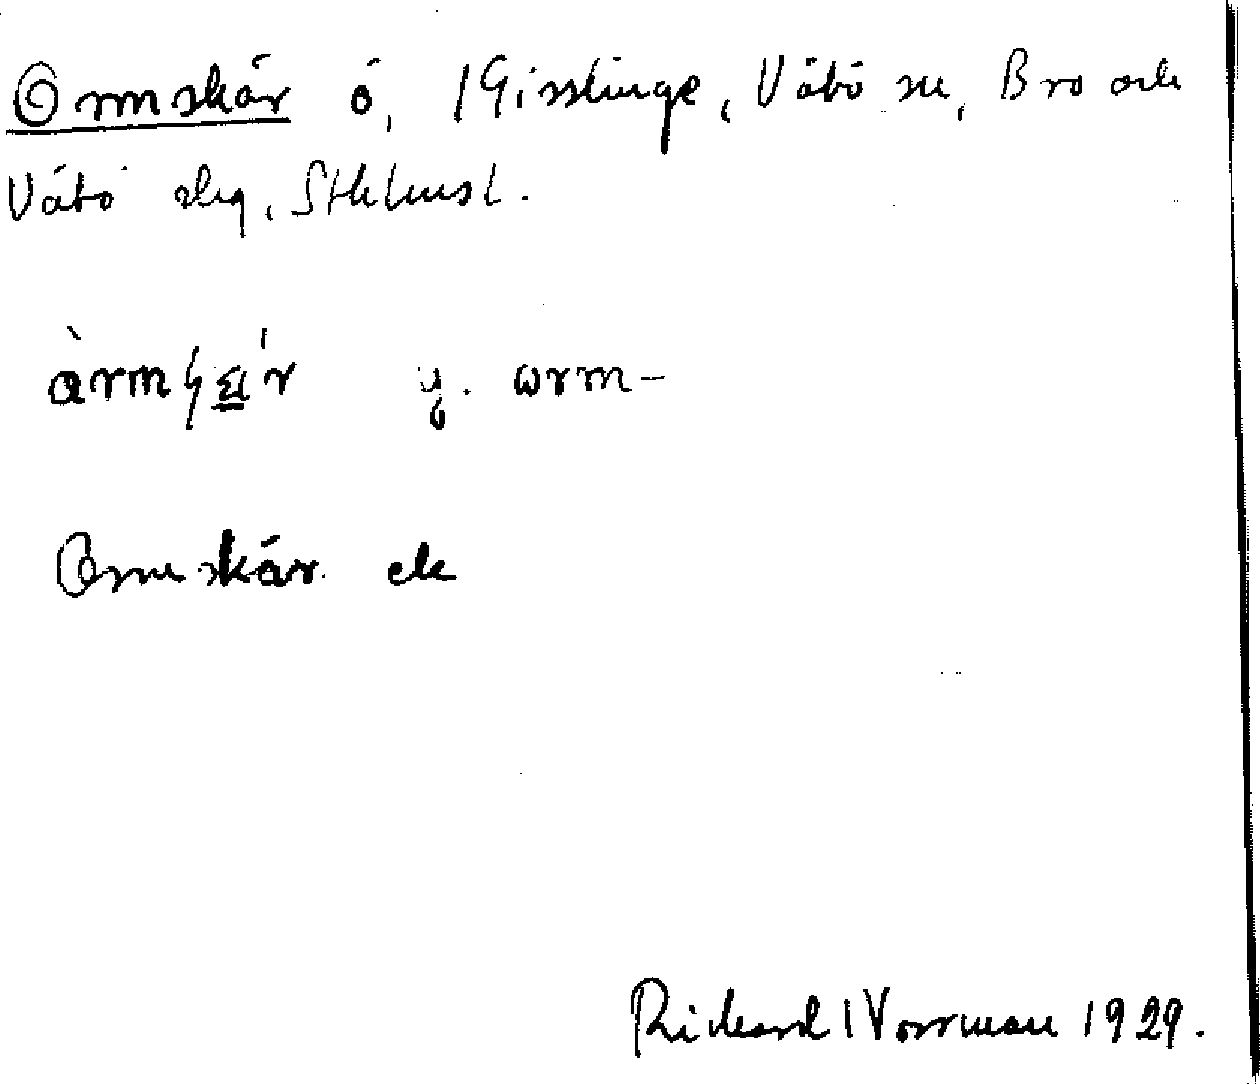 Ormskär ö, Gisslinge, Vätö sn, Bro och
Vätö slg, Sthlmsl.
y. ɷrm-
Ormskär ek
Richard Norrman 1929.